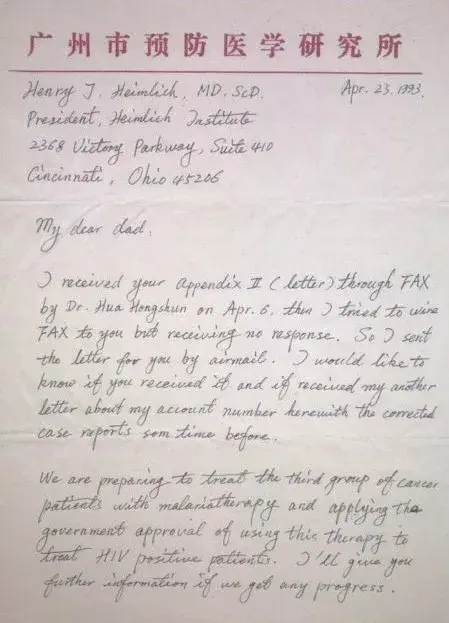 广州市预防医学研究所
Henry J. Heimlich, MD. ScD.
Apr. 23. 1993
President, Heimlich Institute
2368 Victory Parkway, Suite 410
Cincinnati, Ohio 45206
My dear dad,
I received your appendix II (letter) through FAX
by Dr. Hua Hongshun on Apr. 6, then I tried to wire
FAX to you but receiving no response. So I sent
the letter for you by airmail. I would like to
know if you received it and if received my another
letter about my account number herewith the corrected
case reports som time before.
We are preparing to treat the third group of cancer
patients with malariatherapy and applying the
government approval of using this therapy to
treat HIV positive patients. I'll give you
further information if we get any progress.